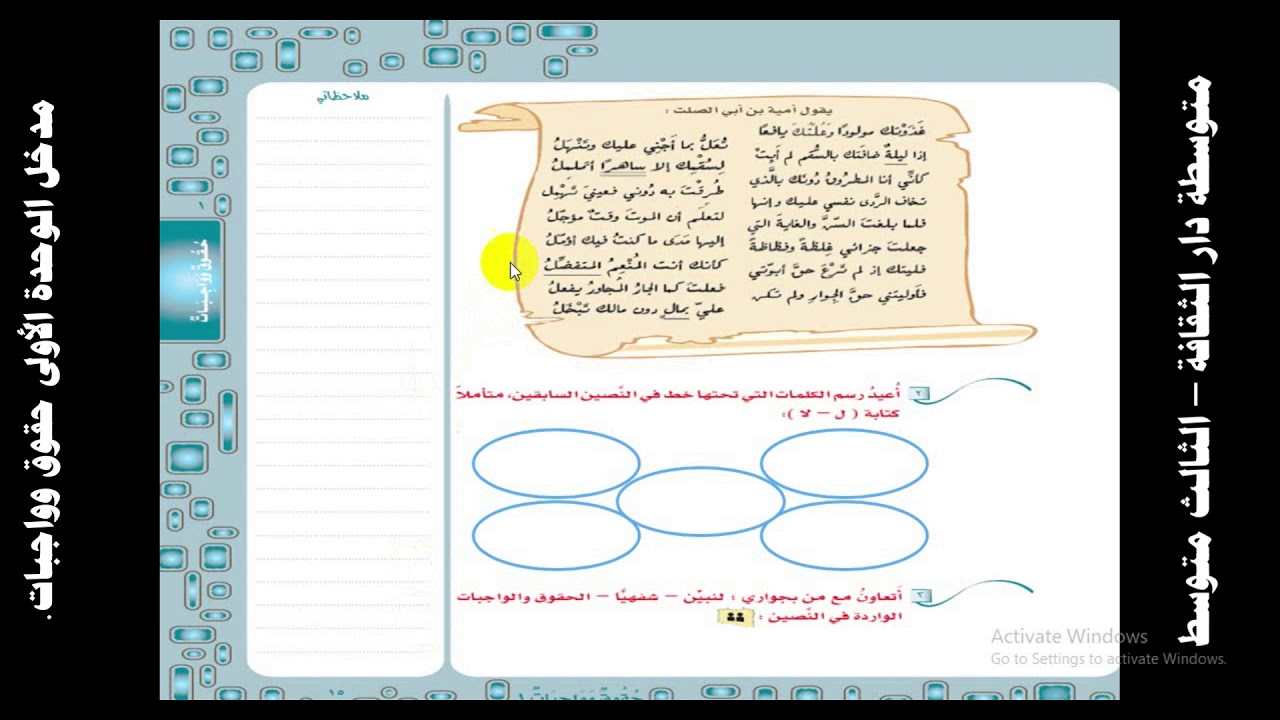 متوسطة دار الثقافة – الثالث متوسط
مدخل الوحدة الأولى حقوق وواجبات.
ملاحظاتي
١
حُقُوقٌ وَوَاجِبَاتٌ
يقول أمية بن أبي الصلت :
غَذَوْتك مولودًا وَعُلْتُكَ يافعًا
تُعَلُّ بما أَجْنِي عليك وتَنْهَلُ
إذا ليلةٌ ضافتك بالسُّقم لم أَبِتْ
لِسُقْمِك إلا ساهرًا أتململُ
كأنِّي أنا المطروقُ دُونَك بالَّذي
طُرِقْتَ به دُوني فعيني تَهْمِل
تخاف الرَّدَى نفسي عليك وإنها
لتعلَم أن الموتَ وقتٌ مؤجّلُ
فلما بلغتَ السنَّ والغايةَ التي
إليها مَدَى ما كنتُ فيك أؤمّلُ
جعلتَ جزائي غِلظةً وفظاظةً
كأنك أنت المُنْعِمُ المتفضِّلُ
فليتك إذ لم تَرْعَ حقَّ أبوّتي
فعلتَ كما الجارُ المجاورُ يفعلُ
فأوليتني حقَّ الجِوارِ ولم تكن
عليّ بمالٍ دون مالك تَبْخَلُ
٢ أُعيدُ رسم الكلمات التي تحتها خط في النَّصين السابقين، متأملاً
كتابة ( ل – لا ):
٣ أتعاونُ مع من بجواري ؛ لنبيّن – شفهيًّا – الحقوق والواجبات
الواردة في النَّصين :
Activate Windows
Go to Settings to activate Windows.
حُقُوقٌ وَوَاجِبَاتٌ ١
© ١٥